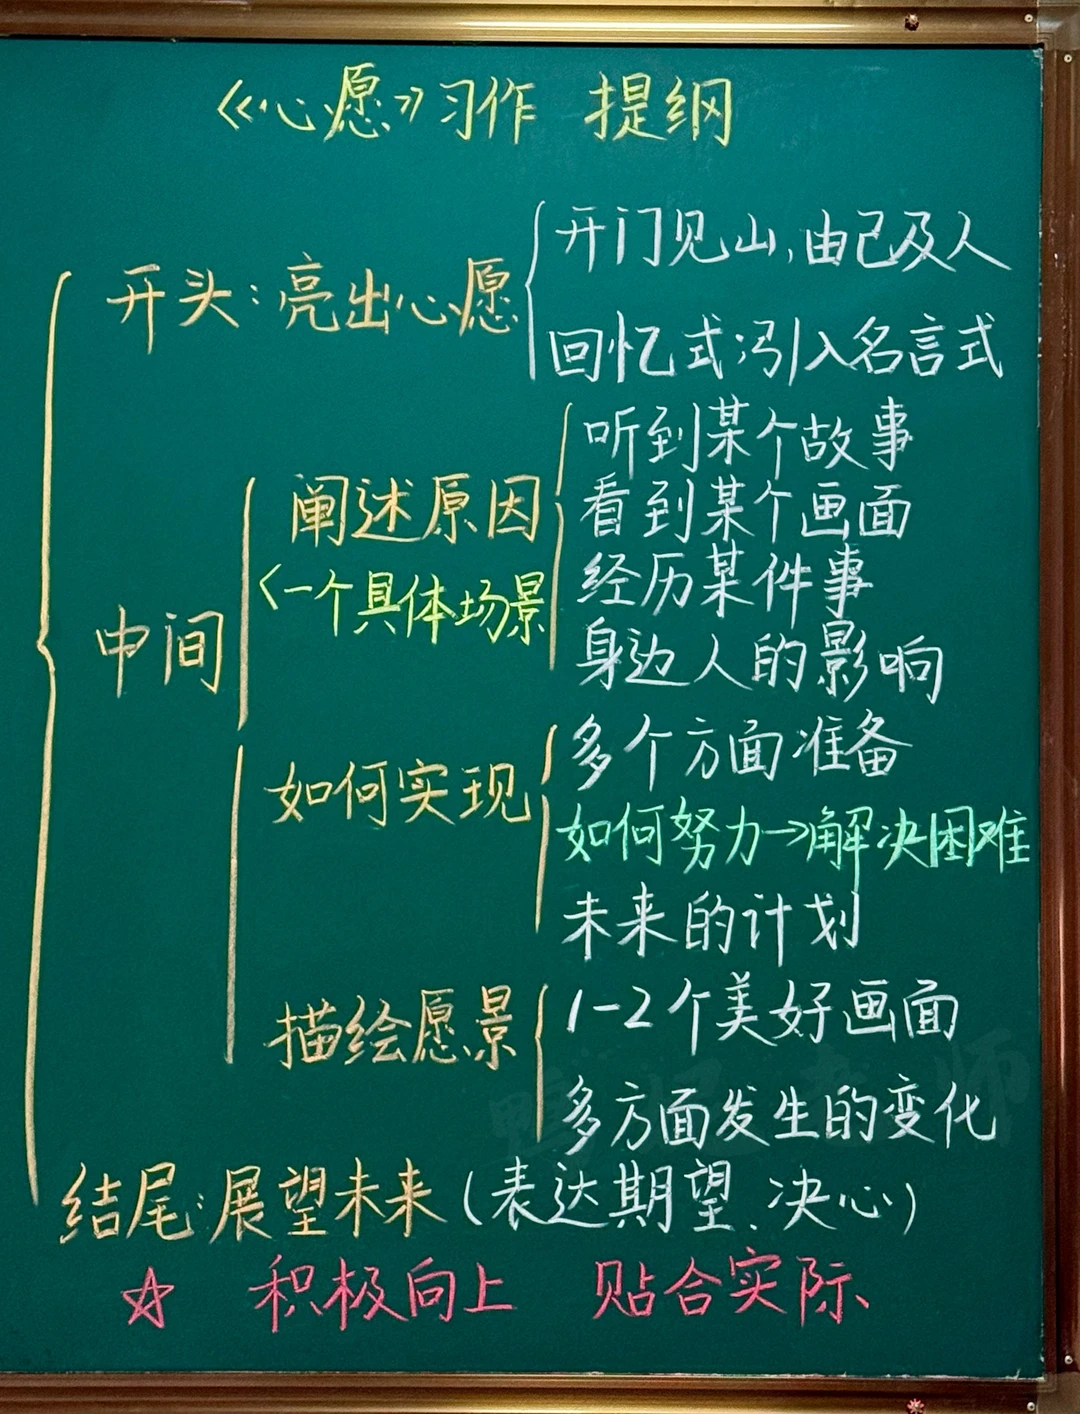 《心愿》习作 提纲
开头：亮出心愿
开门见山，由己及人
回忆式；引入名言式
中间
阐述原因
<一个具体场景
听到某个故事
看到某个画面
经历某件事
身边人的影响
如何实现
多个方面准备
如何努力→解决困难
未来的计划
描绘愿景
1-2个美好画面
多方面发生的变化
结尾：展望未来（表达期望、决心）
☆ 积极向上 贴合实际